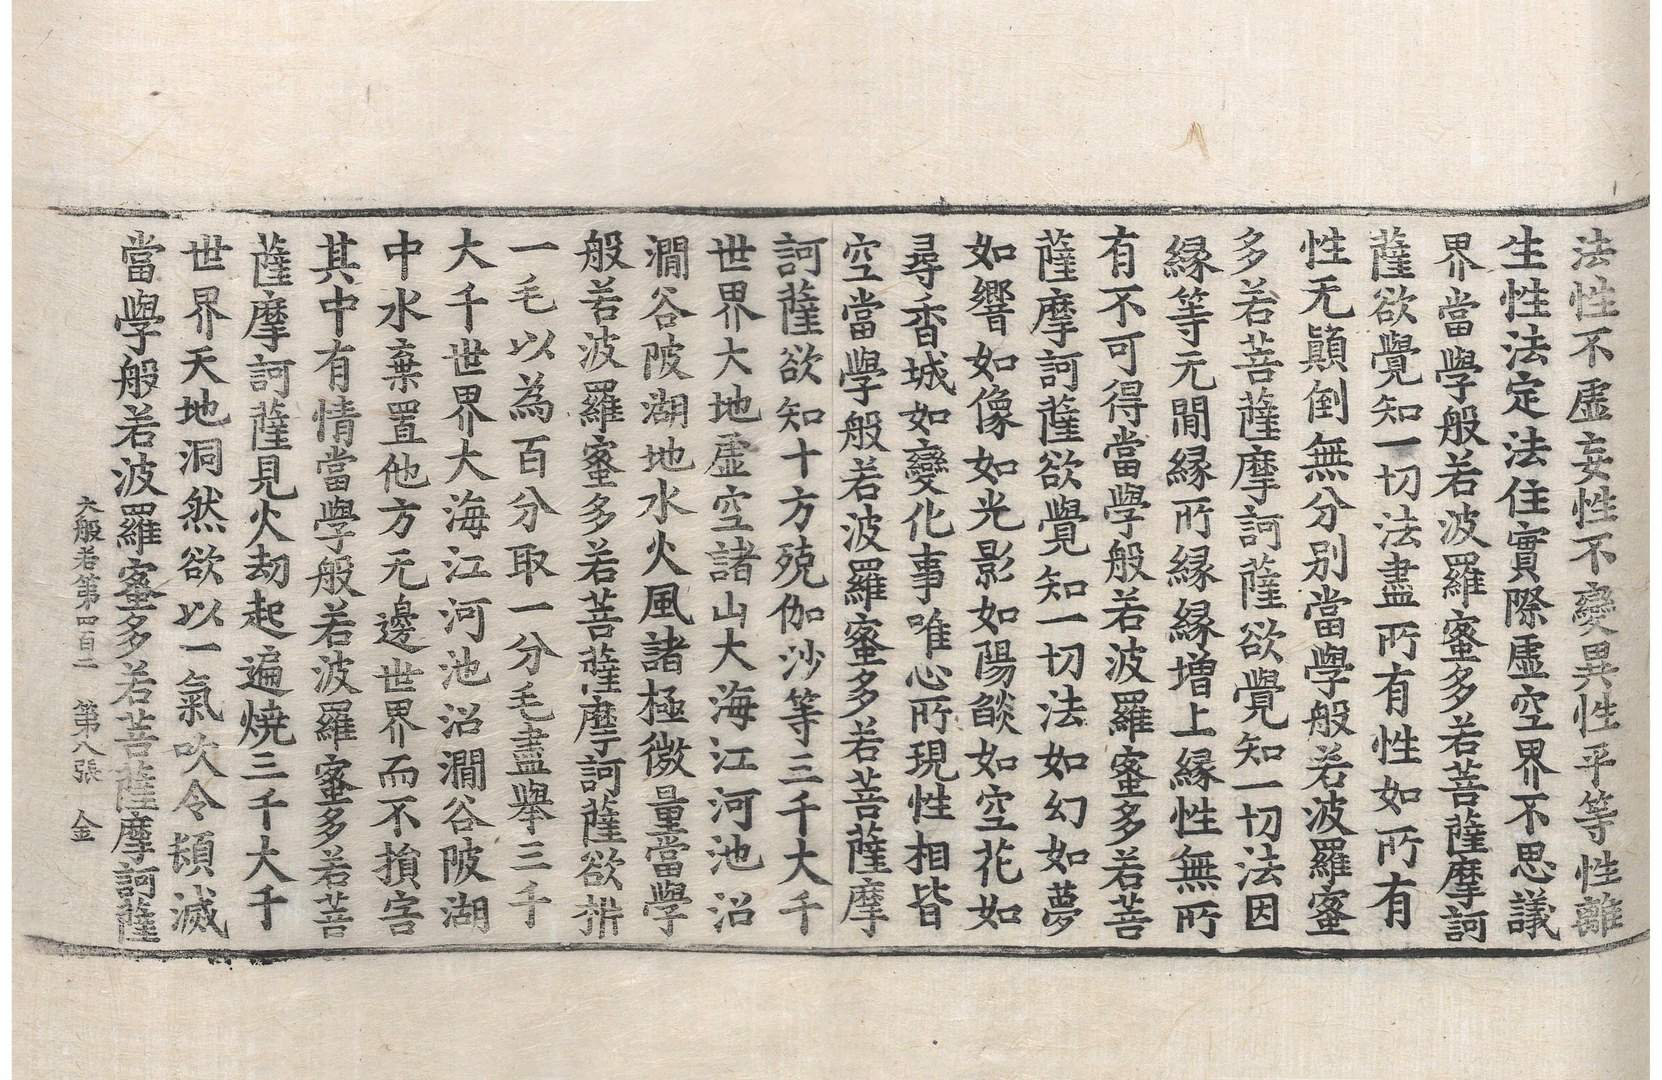 法性不虛妄性不變異性平等性離
生性法定法住實際虛空界不思議
界當學般若波羅蜜多若菩薩摩訶
薩欲覺知一切法盡所有性如所有
性无顚倒無分別當學般若波羅蜜
多若菩薩摩訶薩欲覺知一切法因
緣等无間緣所緣緣增上緣性無所
有不可得當學般若波羅蜜多若菩
薩摩訶薩欲覺知一切法如幻如夢
如響如像如光影如陽焰如空花如
尋香城如變化事唯心所現性相皆
空當學般若波羅蜜多若菩薩摩
訶薩欲知十方殑伽沙等三千大千
世界大地虛空諸山大海江河池沼
澗谷陂湖地水火風諸極微量當學
般若波羅蜜多若菩薩摩訶薩欲㭊
一毛以為百分取一分毛盡舉三千
大千世界大海江河池沼澗谷陂湖
中水棄置他方无邊世界而不損害
其中有情當學般若波羅蜜多若菩
薩摩訶薩見火劫起遍燒三千大千
世界天地洞然欲以一氣吹令頓滅
當學般若波羅蜜多若菩薩摩訶薩
大般若第四百二　第八張　金